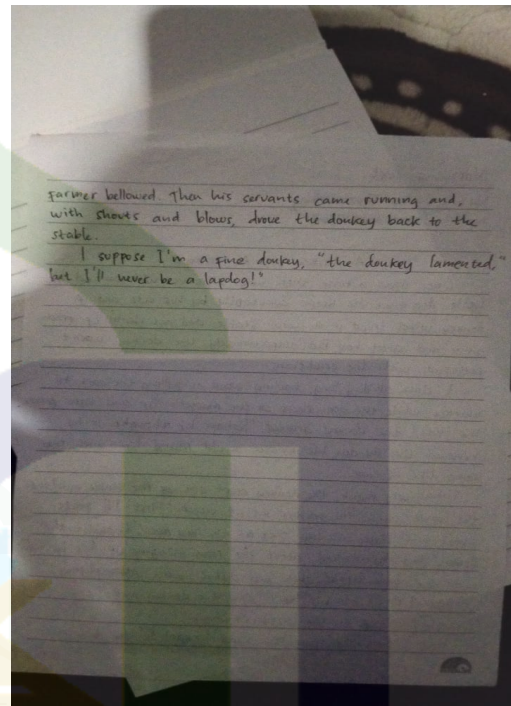 farmer bellowed. Then his servants came running and,
with shouts and blows, drove the donkey back to the
stable.
I suppose I'm a fine donkey, "the donkey lamented,"
but I'll never be a lapdog!"